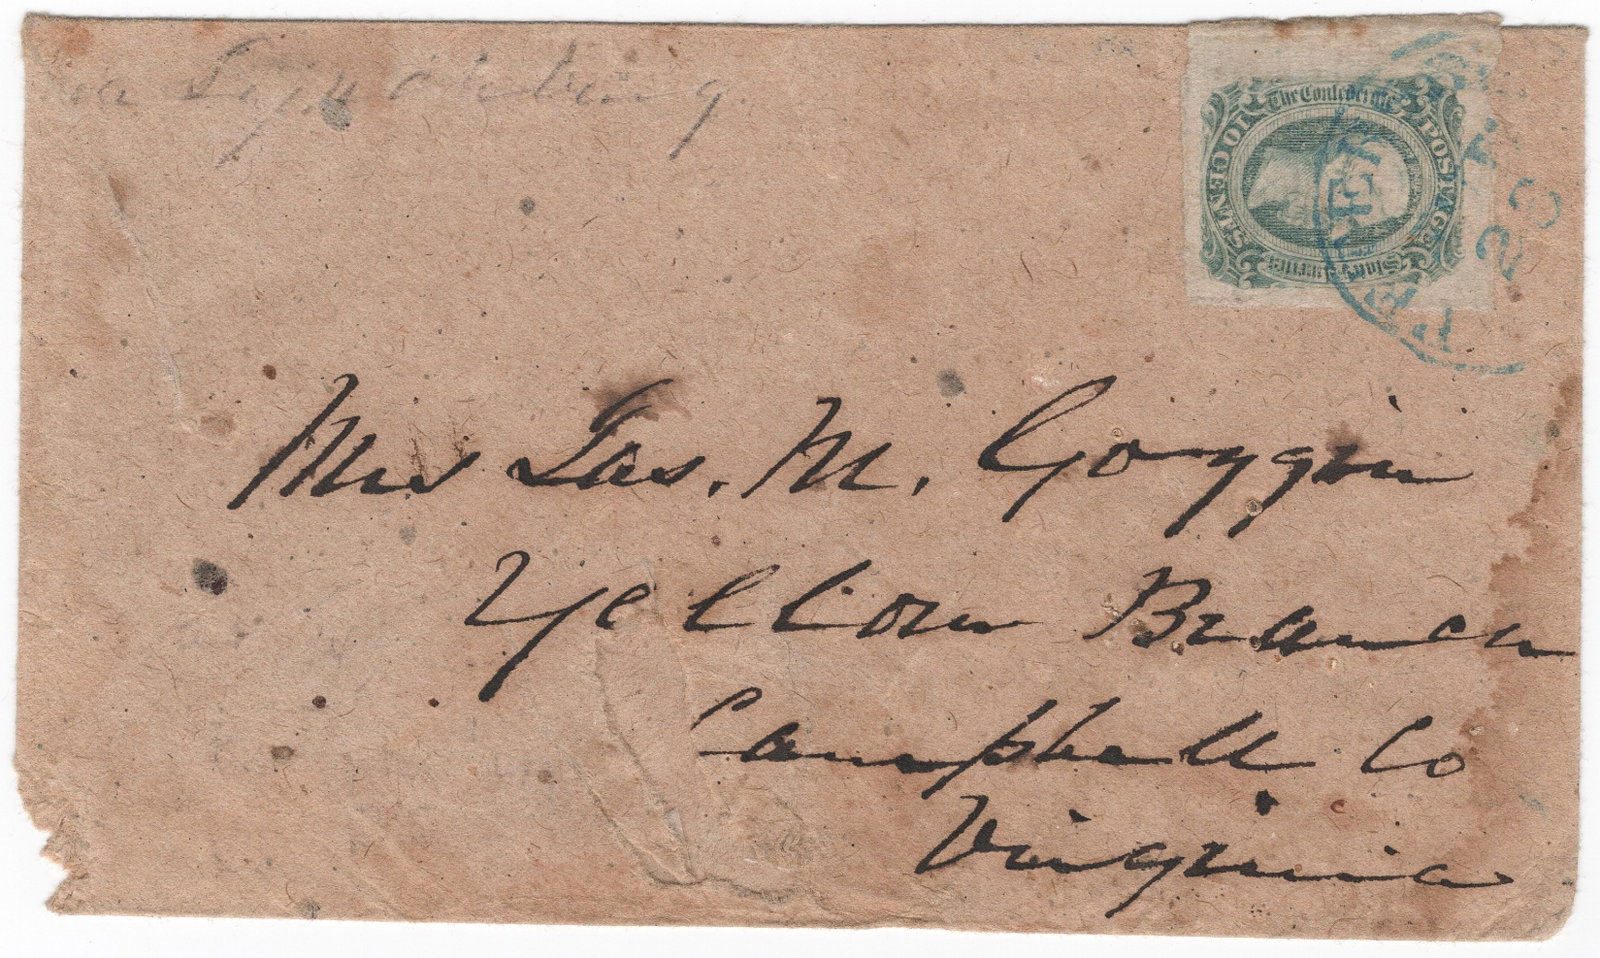 The Confederate
States of America
POSTAGE
10 CENTS
Mrs Jas. M. Goggin
Yellow Branch
Campbell Co
Virginia